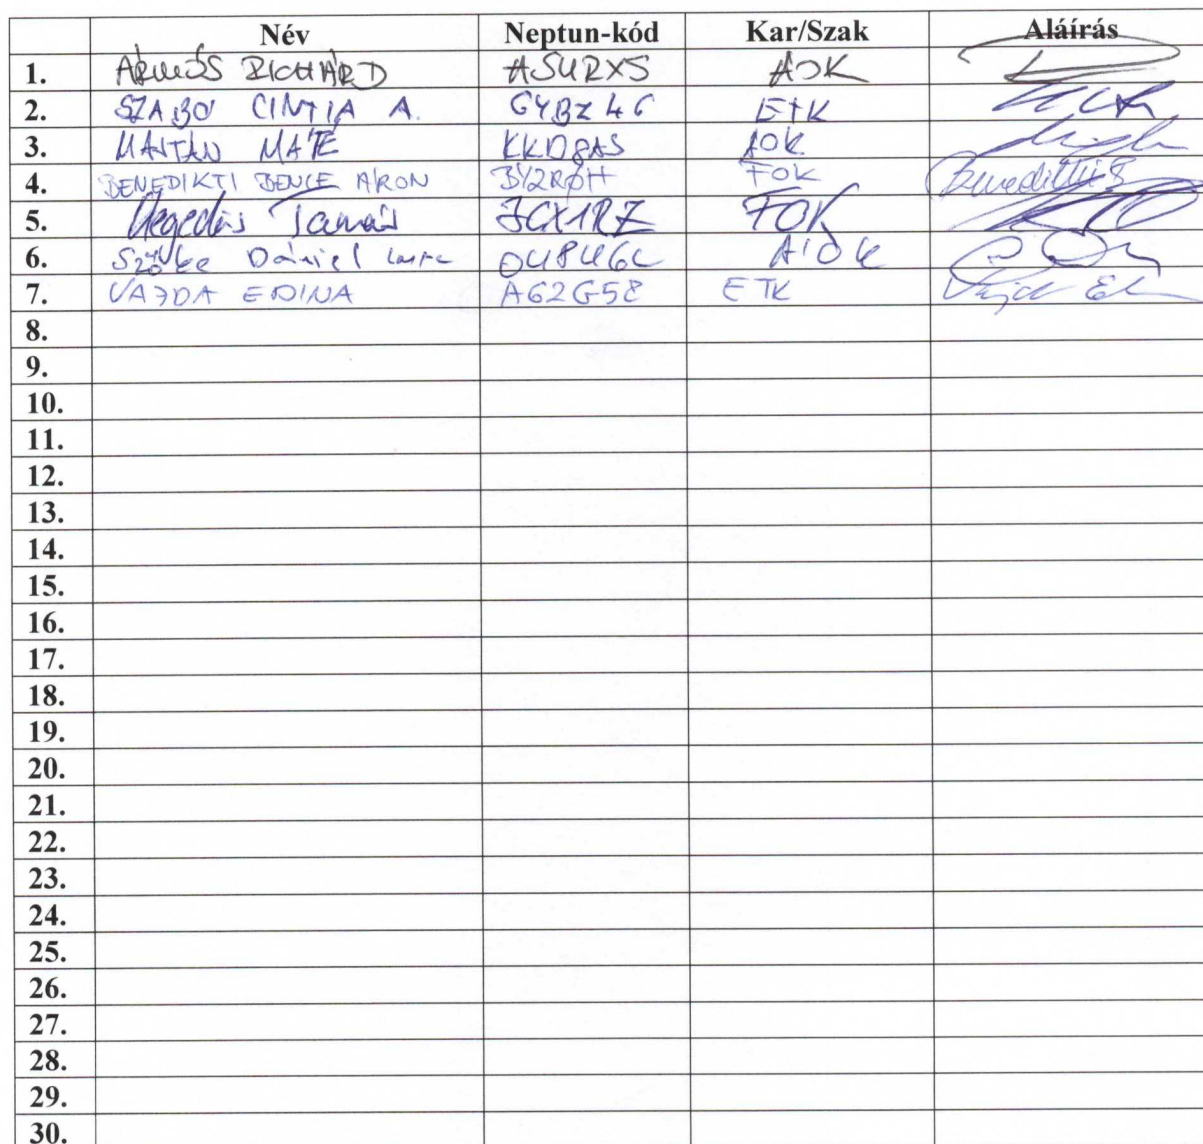 Név Neptun-kód Kar/Szak Aláírás
1. RICHÁRD ÁOK
2. SZABÓ CINTIA A. GYBZ46 ETK
3. MAJTÁN MÁTÉ KKD8AS ÁOK
4. BENEDIKTI BENCE ÁRON BY2RØH FOK
5. Hegedűs Tamás JCX1RZ FOK
6. Szőke Dániel ÁOK
7. VAJDA EDINA A62G58 ETK
8.
9.
10.
11.
12.
13.
14.
15.
16.
17.
18.
19.
20.
21.
22.
23.
24.
25.
26.
27.
28.
29.
30.